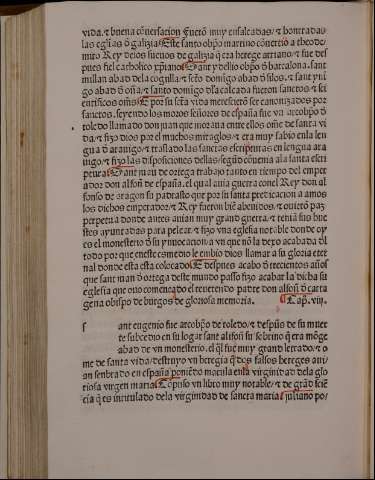 vida. ⁊ buena cõuersacion ⁊ fuerõ muy ensalcadas/ ⁊ honrradas
las egl'ias d' galizia/ Este santo obp̃o martino cõuertio a theode/
miro Rey delos sueuos de galizia q̃ era herege arriano/ ⁊ fue des
pues fiel catholico xp̃iano/ Sant ydelio obp̃o d' barcelona. sant
millan abad dela cogulla/ ⁊ sc̃to domigo abad d' silos. ⁊ sant yñi
go abad d' oña/ ⁊ santo domingo dla calcada fueron sanctos/ ⁊ sci
entificos om̃s/ E por su sc̃ta vida merescierõ ser canonizados por
sanctos. seyendo los moros señores de españa fue vn arcobp̃o d'
toledo llamado don juan que moraua entre ellos om̃e de santa vi
da/ ⁊ fizo dios por el muchos miraglos/ ⁊ era muy sabio enla len
gua d' arauigo/ ⁊ traslado las sanctas escripturas en lengua ara
uiga/ ⁊ fizo las disposiciones dellas/ segũd cõuenia ala santa escri
ptura/ Sant juan de ortega trabajo tanto en tiempo del emper
ador don alfon̄ de españa. el qual auia guerra conel Rey don al
fonso de aragon su padrasto que por su santa predicacion a amos
los dichos emperador/ ⁊ Rey fueron biẽ abenidos/ ⁊ ouierõ paz
perpetua donde antes auian muy grand guerra/ ⁊ tenia sus hue
stes ayuntadas para pelear/ ⁊ fizo vna eglesia notable donde oy
es el monesterio d' su ynuocacion a vn que nõ la dexo acabada d'l
todo por que eneste comedio le embio dios llamar a su gloria eter
nal donde esta esta colocado/ E despues acabo d' trecientos años
que sant juan d' ortega deste mundo passo fizo acabar la dicha su
eglesia que ouo comencado el reuerendo padre don alfon̄ d' carta
gena obispo de burgos de gloriosa memoria. Cap̃. viij.
s ant eugenio fue arcobp̃o de toledo/ ⁊ despũs de su muer
te subcedio en su logar sant alifon̄ su sobrino q̃ era mõge
abad de vn monesterio. el q̃l fue muy grand letrado/ ⁊ o
me de santa vida/ destruyo vn heregia q̃ dos falsos hereges aui/
an senbrado en españa poniẽdo macula enla virginidad dela glo
riosa virgen maria/ Cõpuso vn libro muy notable/ ⁊ de grãd sciẽ
cia q̃ es intitulado dela virginidad de sancta maria/ juliano po/